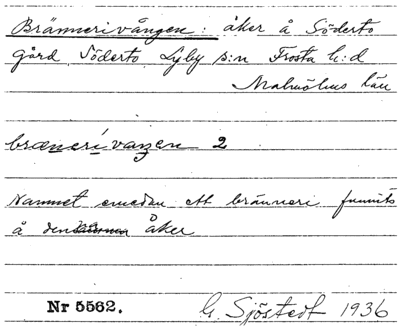 Brännerivången: åker å Söderto
gård Söderto Lyby s:n Frosta h:d
Malmöhus län
brænerivaŋen 2
Namnet emedan ett bränneri funnits
å den åker
Nr 5562. G. Sjöstedt 1936